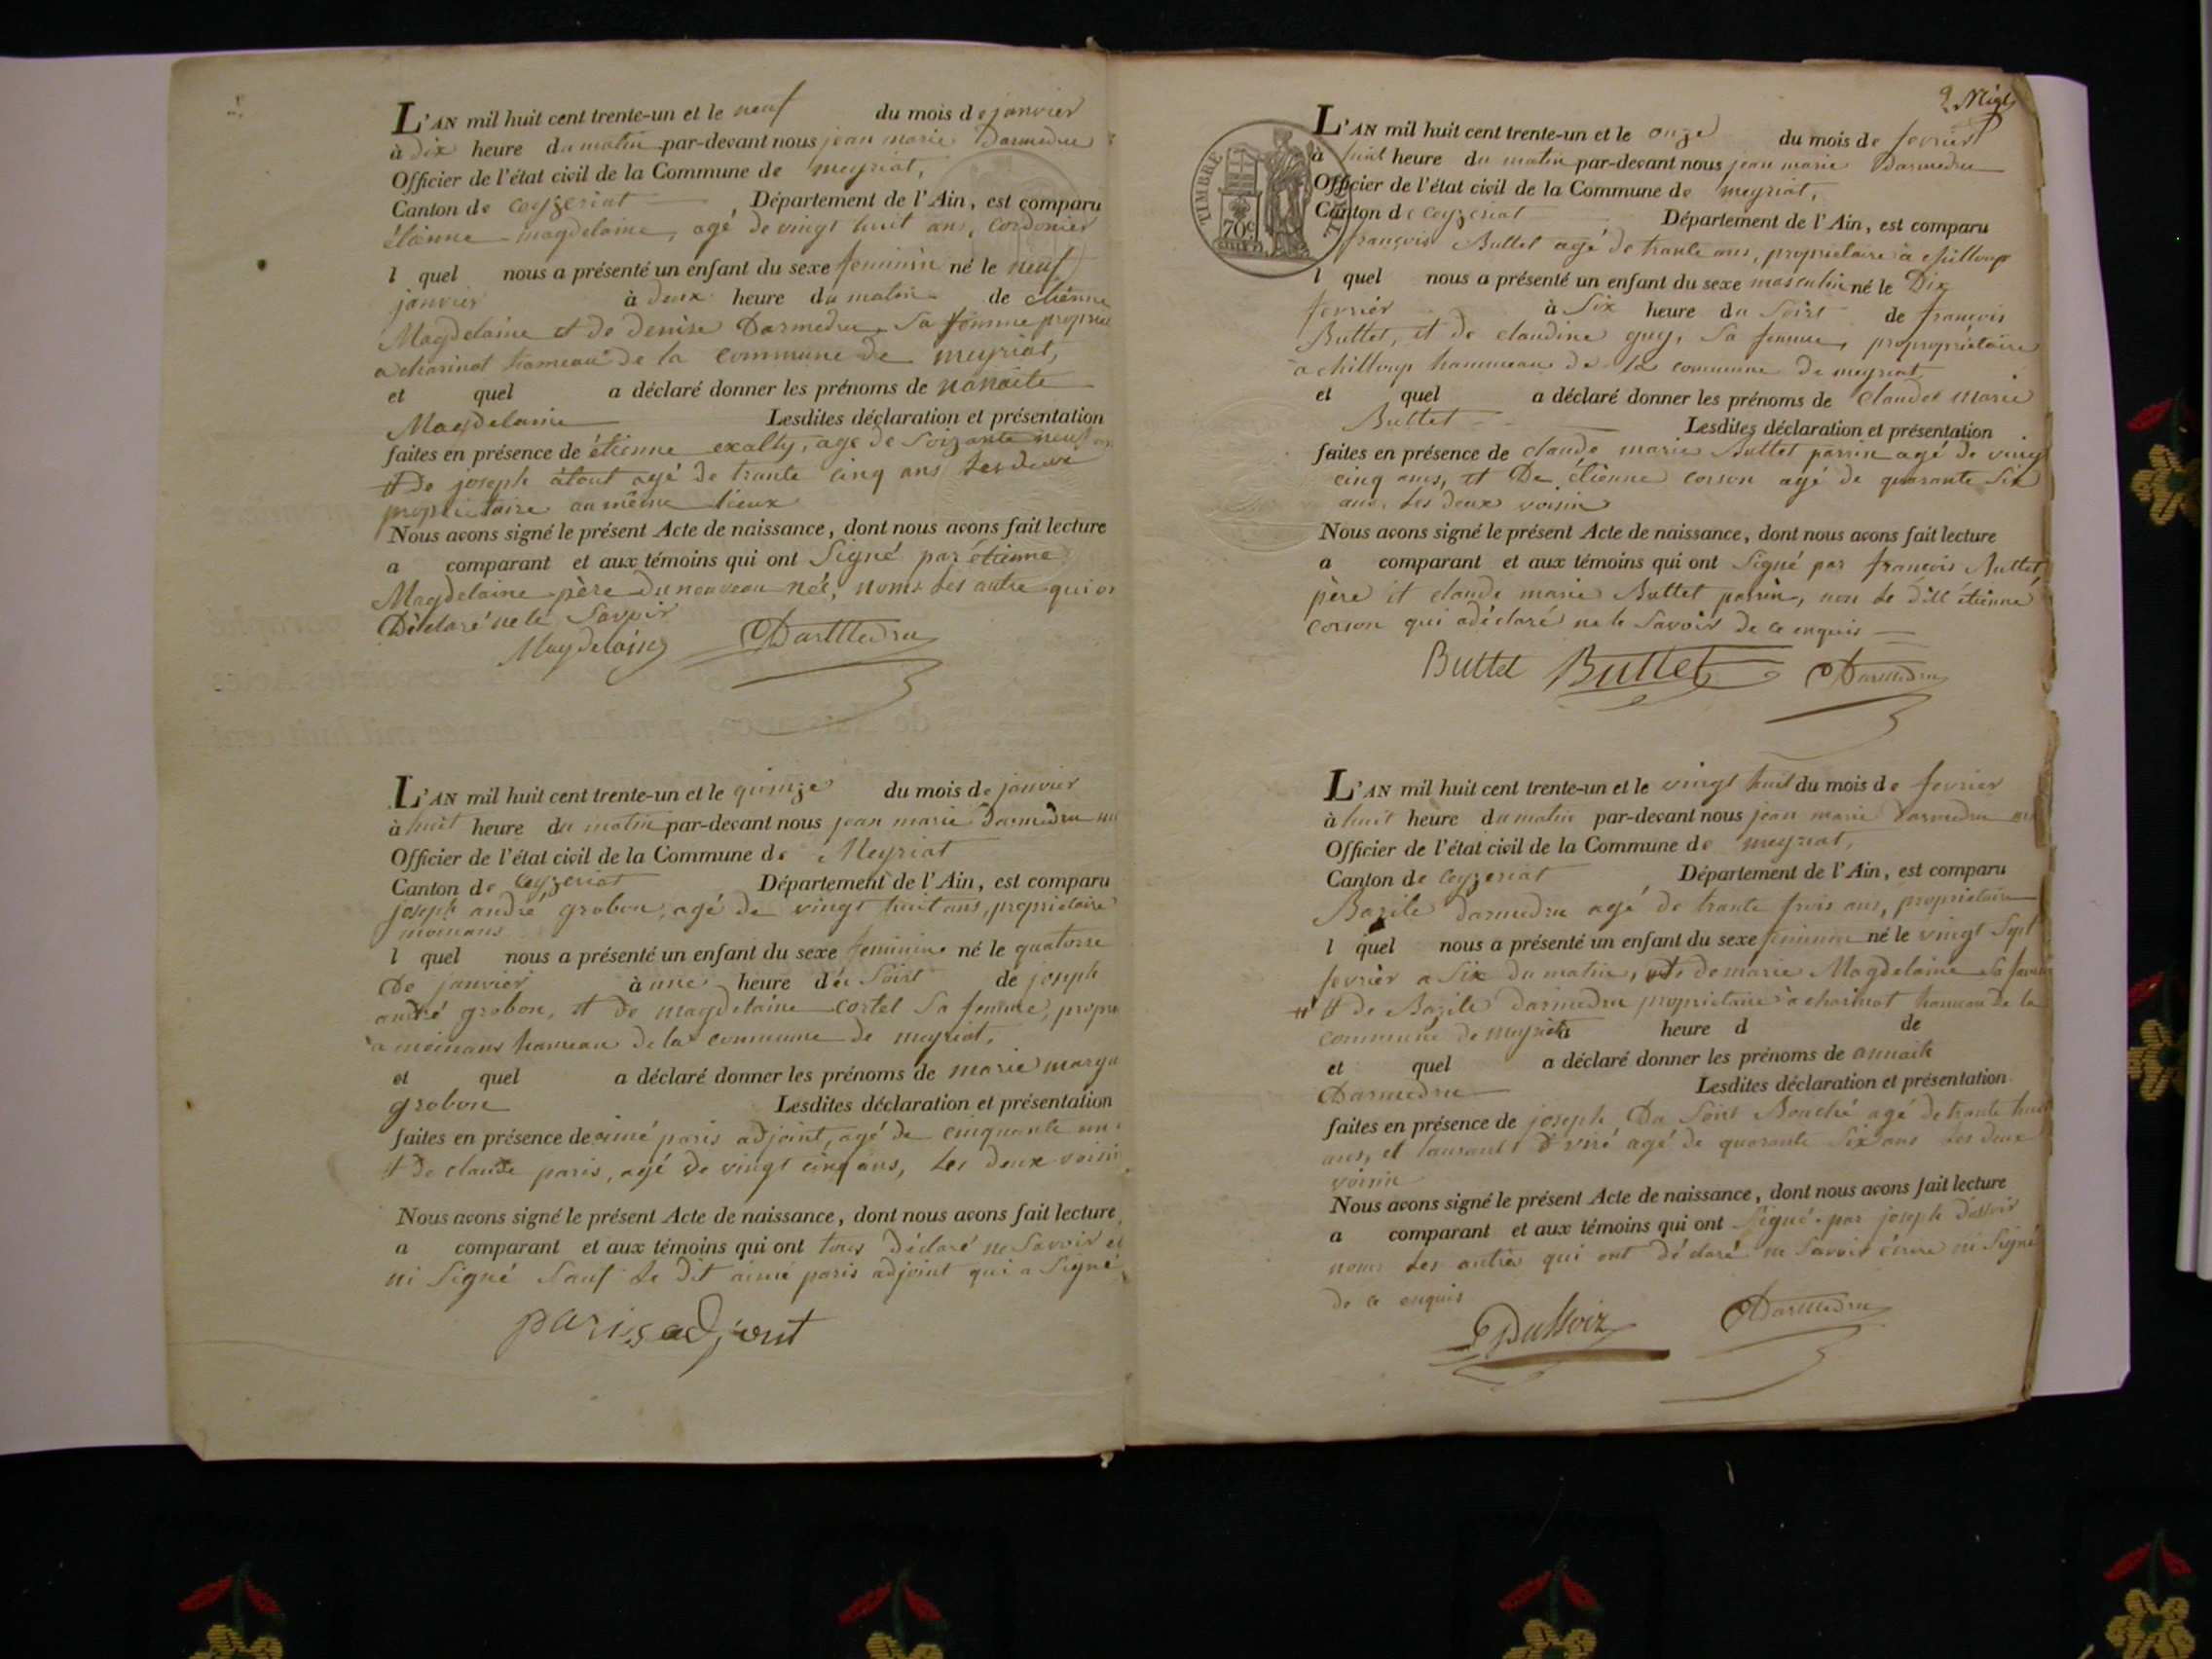 L'AN mil huit cent trente-un et le neuf du mois de janvier
à dix heure du matin par-devant nous jean marie Darmedru
Officier de l'état civil de la Commune de meyriat,
Canton de ceyzeriat Département de l'Ain, est comparu
étienne magdelaine, agé de vingt huit ans, cordonier
l quel nous a présenté un enfant du sexe feminin né le neuf
janvier à deux heure du matin de étienne
Magdelaine et de denise Darmedru sa femme propriet
a charinat hameau de la commune de meyriat,
et quel a déclaré donner les prénoms de nanaite
Magdelaine Lesdites déclaration et présentation
faites en présence de étienne exally, age de soizante neuf
et De joseph atout agé de trante cinq ans les deux
proprietaire au même lieux
Nous avons signé le présent Acte de naissance, dont nous avons fait lecture
a comparant et aux témoins qui ont Signé par étienne
Magdelaine père du nouveau née, noms les autre qui on
Déclaré ne le Savoir
Magdelaine Darmedru
L'AN mil huit cent trente-un et le quinze du mois de janvier
à huit heure du matin par-devant nous jean marie Darmedru
Officier de l'état civil de la Commune de Meyriat
Canton de ceyzeriat Département de l'Ain, est comparu
joseph andré grobon, agé de vingt huit ans, proprietaire
moinans
l quel nous a présenté un enfant du sexe feminin né le quatorse
De janvier à une heure du Soirt de joseph
andré grobon, et de magdelaine cortel sa femme, propri
a moinans hameau de la commune de meyriat,
et quel a déclaré donner les prénoms de marie margu
grobon Lesdites déclaration et présentation
faites en présence de aimé paris adjoint, agé de cinquante un
et De claude paris, agé de vingt cinq ans, les deux voisin
Nous avons signé le présent Acte de naissance, dont nous avons fait lecture
a comparant et aux témoins qui ont tous déclaré ne Savoir
ni Signé Sauf le dit aimé paris adjoint qui a Signé
paris adjout
2
TIMBRE
70c
L'AN mil huit cent trente-un et le onze du mois de fevrier
à huit heure du matin par-devant nous jean marie Darmedru
Officier de l'état civil de la Commune de meyriat,
Canton de ceyzeriat Département de l'Ain, est comparu
françois Buttet agé de trante ans, proprietaire a chilloup
l quel nous a présenté un enfant du sexe masculin né le Dix
fevrier à Six heure du Soirt de françois
Buttet, et de claudine guy, sa femme, propropriétaire
a chilloup hammeau de la commune de meyriat
et quel a déclaré donner les prénoms de claude marie
Buttet Lesdites déclaration et présentation
faites en présence de claude marie Buttet parrin agé de vingt
cinq ans, et De étienne corson agé de quarante Six
ans, les deux voisin
Nous avons signé le présent Acte de naissance, dont nous avons fait lecture
a comparant et aux témoins qui ont Signé par françois Buttet
père et claude marie Buttet parrin, non le dit étienne
corson qui a déclaré ne le Savoir de ce enquis
Buttet Buttet Darmedru
L'AN mil huit cent trente-un et le vingt huit du mois de fevrier
à huit heure du matin par-devant nous jean marie Darmedru
Officier de l'état civil de la Commune de meyriat,
Canton de Ceyzeriat Département de l'Ain, est comparu
Bazile Darmedru agé de trante trois ans, propriétaire
l quel nous a présenté un enfant du sexe feminin né le vingt Sept
fevrier a Six du matin, de marie Magdelaine sa femme
et de Bazile Darmedru proprietaire a charinat hameau de la
commune de meyriat à heure d de
et quel a déclaré donner les prénoms de annaite
Darmedru Lesdites déclaration et présentation
faites en présence de joseph Du Soirt Bouché agé de trante huit
ans, et agé de quarante Six ans les deux
voisin
Nous avons signé le présent Acte de naissance, dont nous avons fait lecture
a comparant et aux témoins qui ont Signé par joseph dussoir
noms les autres qui ont déclaré ne Savoir écrire ni Signé
de ce enquis
Dussoir Darmedru